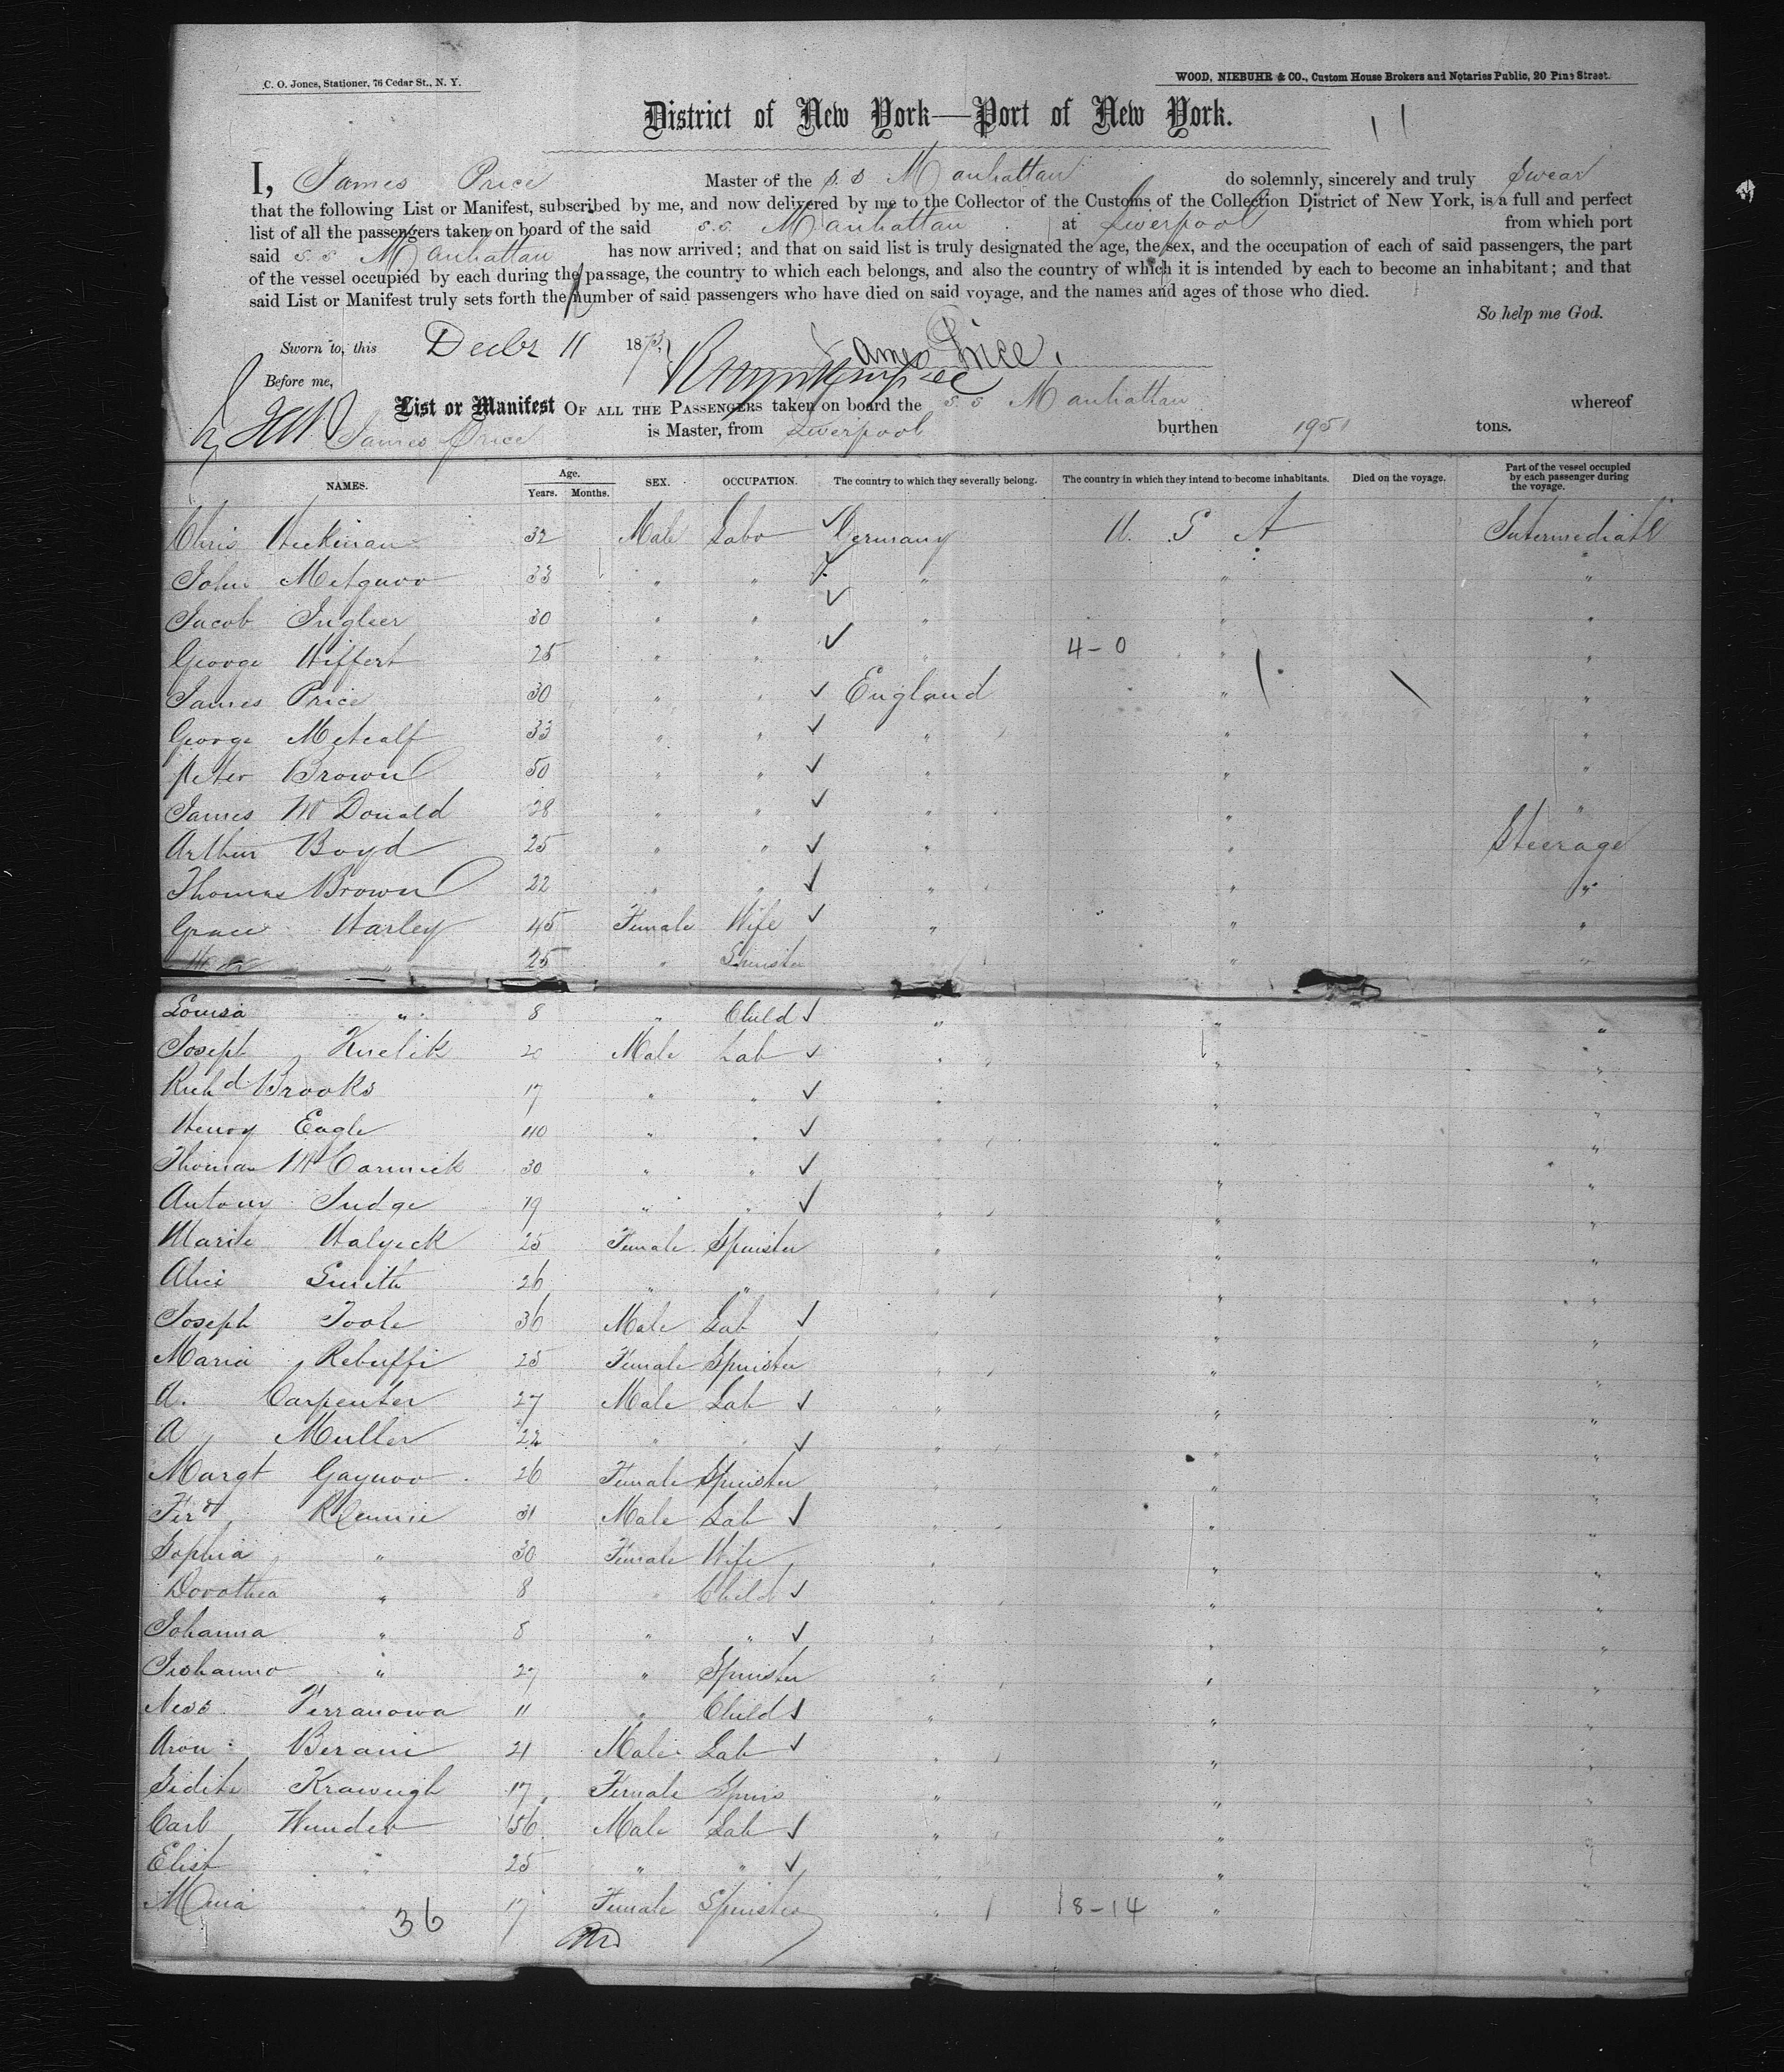 C. O. Jones, Stationer, 76 Cedar St., N. Y.
WOOD, NIEBUHR & CO., Custom House Brokers and Notaries Public, 20 Pine Street.
District of New York—Port of New York.
11
I, James Price Master of the s. s Manhattan do solemnly, sincerely and truly Swear
that the following List or Manifest, subscribed by me, and now delivered by me to the Collector of the Customs of the Collection District of New York, is a full and perfect
list of all the passengers taken on board of the said s.s. Manhattan at Liverpool from which port
said s. s Manhattan has now arrived; and that on said list is truly designated the age, the sex, and the occupation of each of said passengers, the part
of the vessel occupied by each during the passage, the country to which each belongs, and also the country of which it is intended by each to become an inhabitant; and that
said List or Manifest truly sets forth the number of said passengers who have died on said voyage, and the names and ages of those who died.
So help me God.
Sworn to, this Decbr 11 1873, James Price.
Before me,
List or Manifest OF ALL THE PASSENGERS taken on board the s. s Manhattan whereof
James Price is Master, from Liverpool burthen 1951 tons.
NAMES. Age. Years. Months. SEX. OCCUPATION. The country to which they severally belong. The country in which they intend to become inhabitants. Died on the voyage. Part of the vessel occupied by each passenger during the voyage.
Chris Heekman 32 Male Labo ✓ Germany U. S A Intermediate
John 33 " " ✓ " " "
Jacob Inglser 30 " " ✓ " " "
George Hiffert 25 " " ✓ " 4-0 " "
James Price 30 " " ✓ England " "
George Metcalf 33 " " ✓ " " "
Peter Brown 50 " " ✓ " " "
James McDonald 28 " " ✓ " " "
Arthur Boyd 25 " " ✓ " " Steerage
Thomas Brown 22 " " ✓ " " "
Grace Harley 45 Female Wife ✓ " " "
" 25 " Spinster " "
Louisa " 8 " Child ✓ " " "
Joseph Kuelik 20 Male Lab ✓ " " "
Richd Brooks 17 " " ✓ " " "
Henry Eagle 40 " " ✓ " " "
Thomas McCormick 30 " " ✓ " " "
Antony Judge 19 " " ✓ " " "
Marie Halyeck 25 Female Spinster " " "
Alice Smith 26 " " " " "
Joseph Toole 36 Male Lab ✓ " " "
Maria Rebuffi 25 Female Spinster " " "
A. Carpenter 27 Male Lab ✓ " " "
A Muller 22 " " ✓ " " "
Margt Gaynor 26 Female Spinster " " "
31 Male Lab ✓ " " "
Sophia " 30 Female Wife " " "
Dorothea " 8 " Child ✓ " " "
Johanna " 8 " " ✓ " " "
" 27 " Spinster " " "
Ness Ferranowa 11 " Child ✓ " " "
Aron Berani 21 Male Lab ✓ " " "
Kraweigh 17 Female Spins " " "
Carl Wunder 56 Male Lab ✓ " " "
Elist " 25 " " ✓ " " "
17 Female Spinster " 18-14 "
36